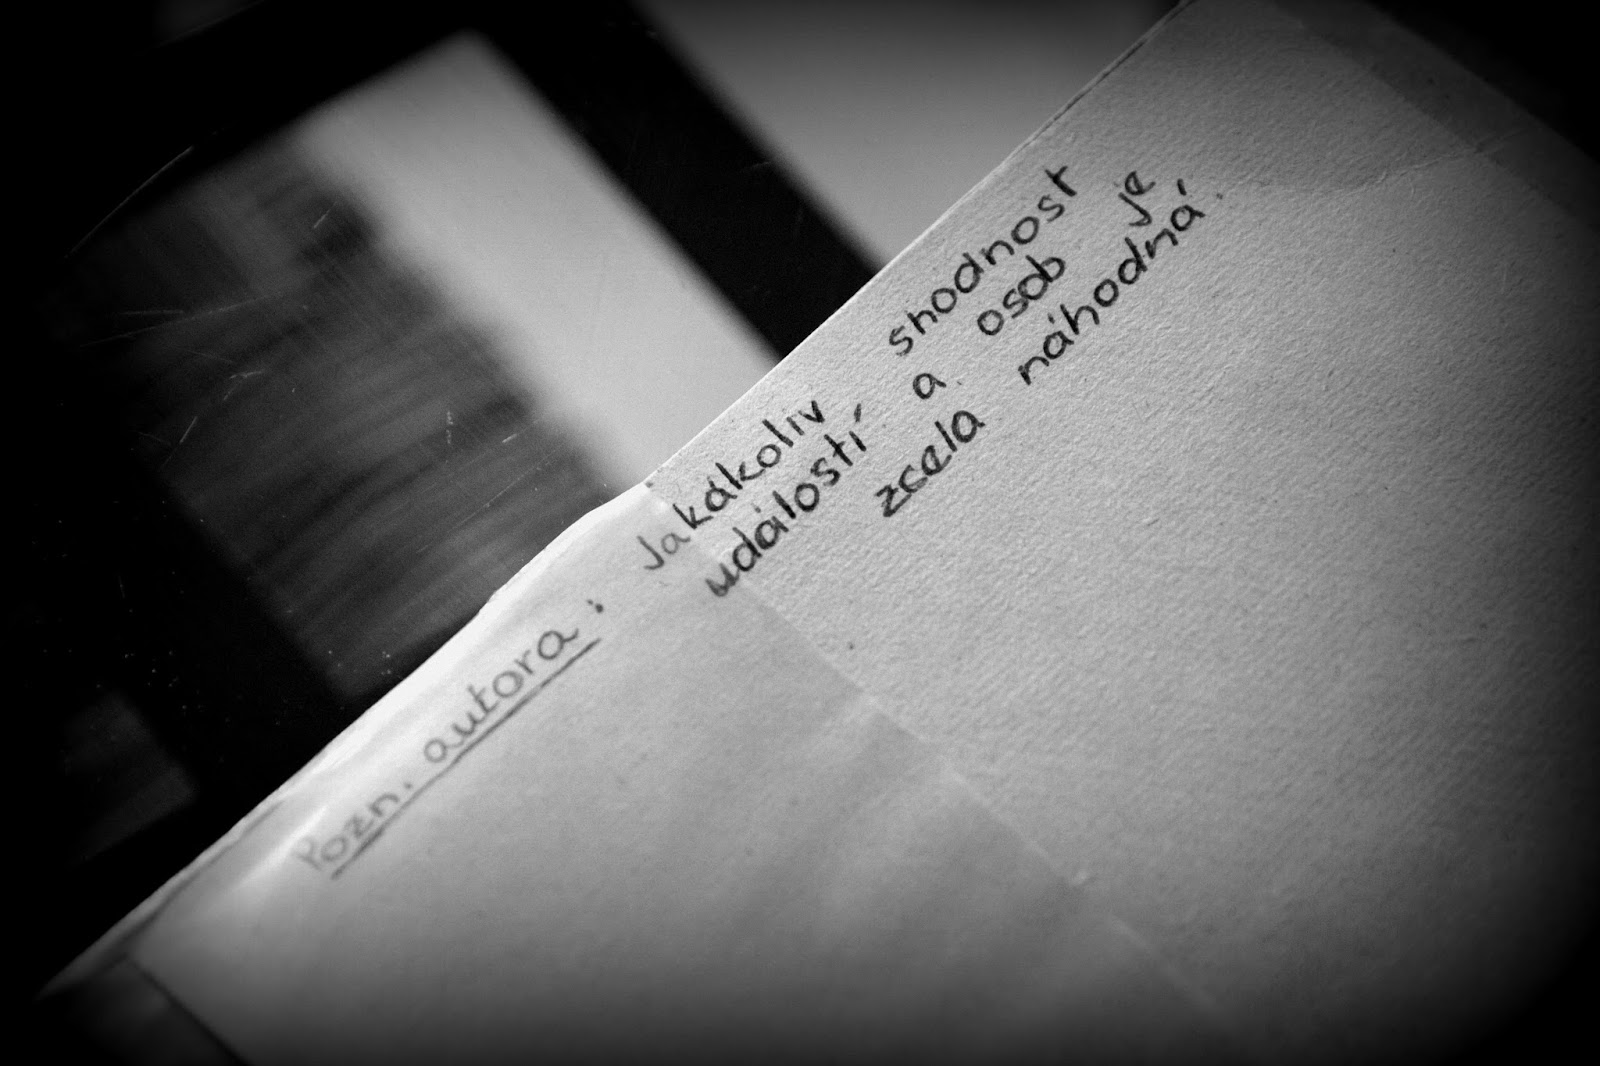 Pozn. autora: Jakákoliv shodnost
událostí a osob je
zcela náhodná.